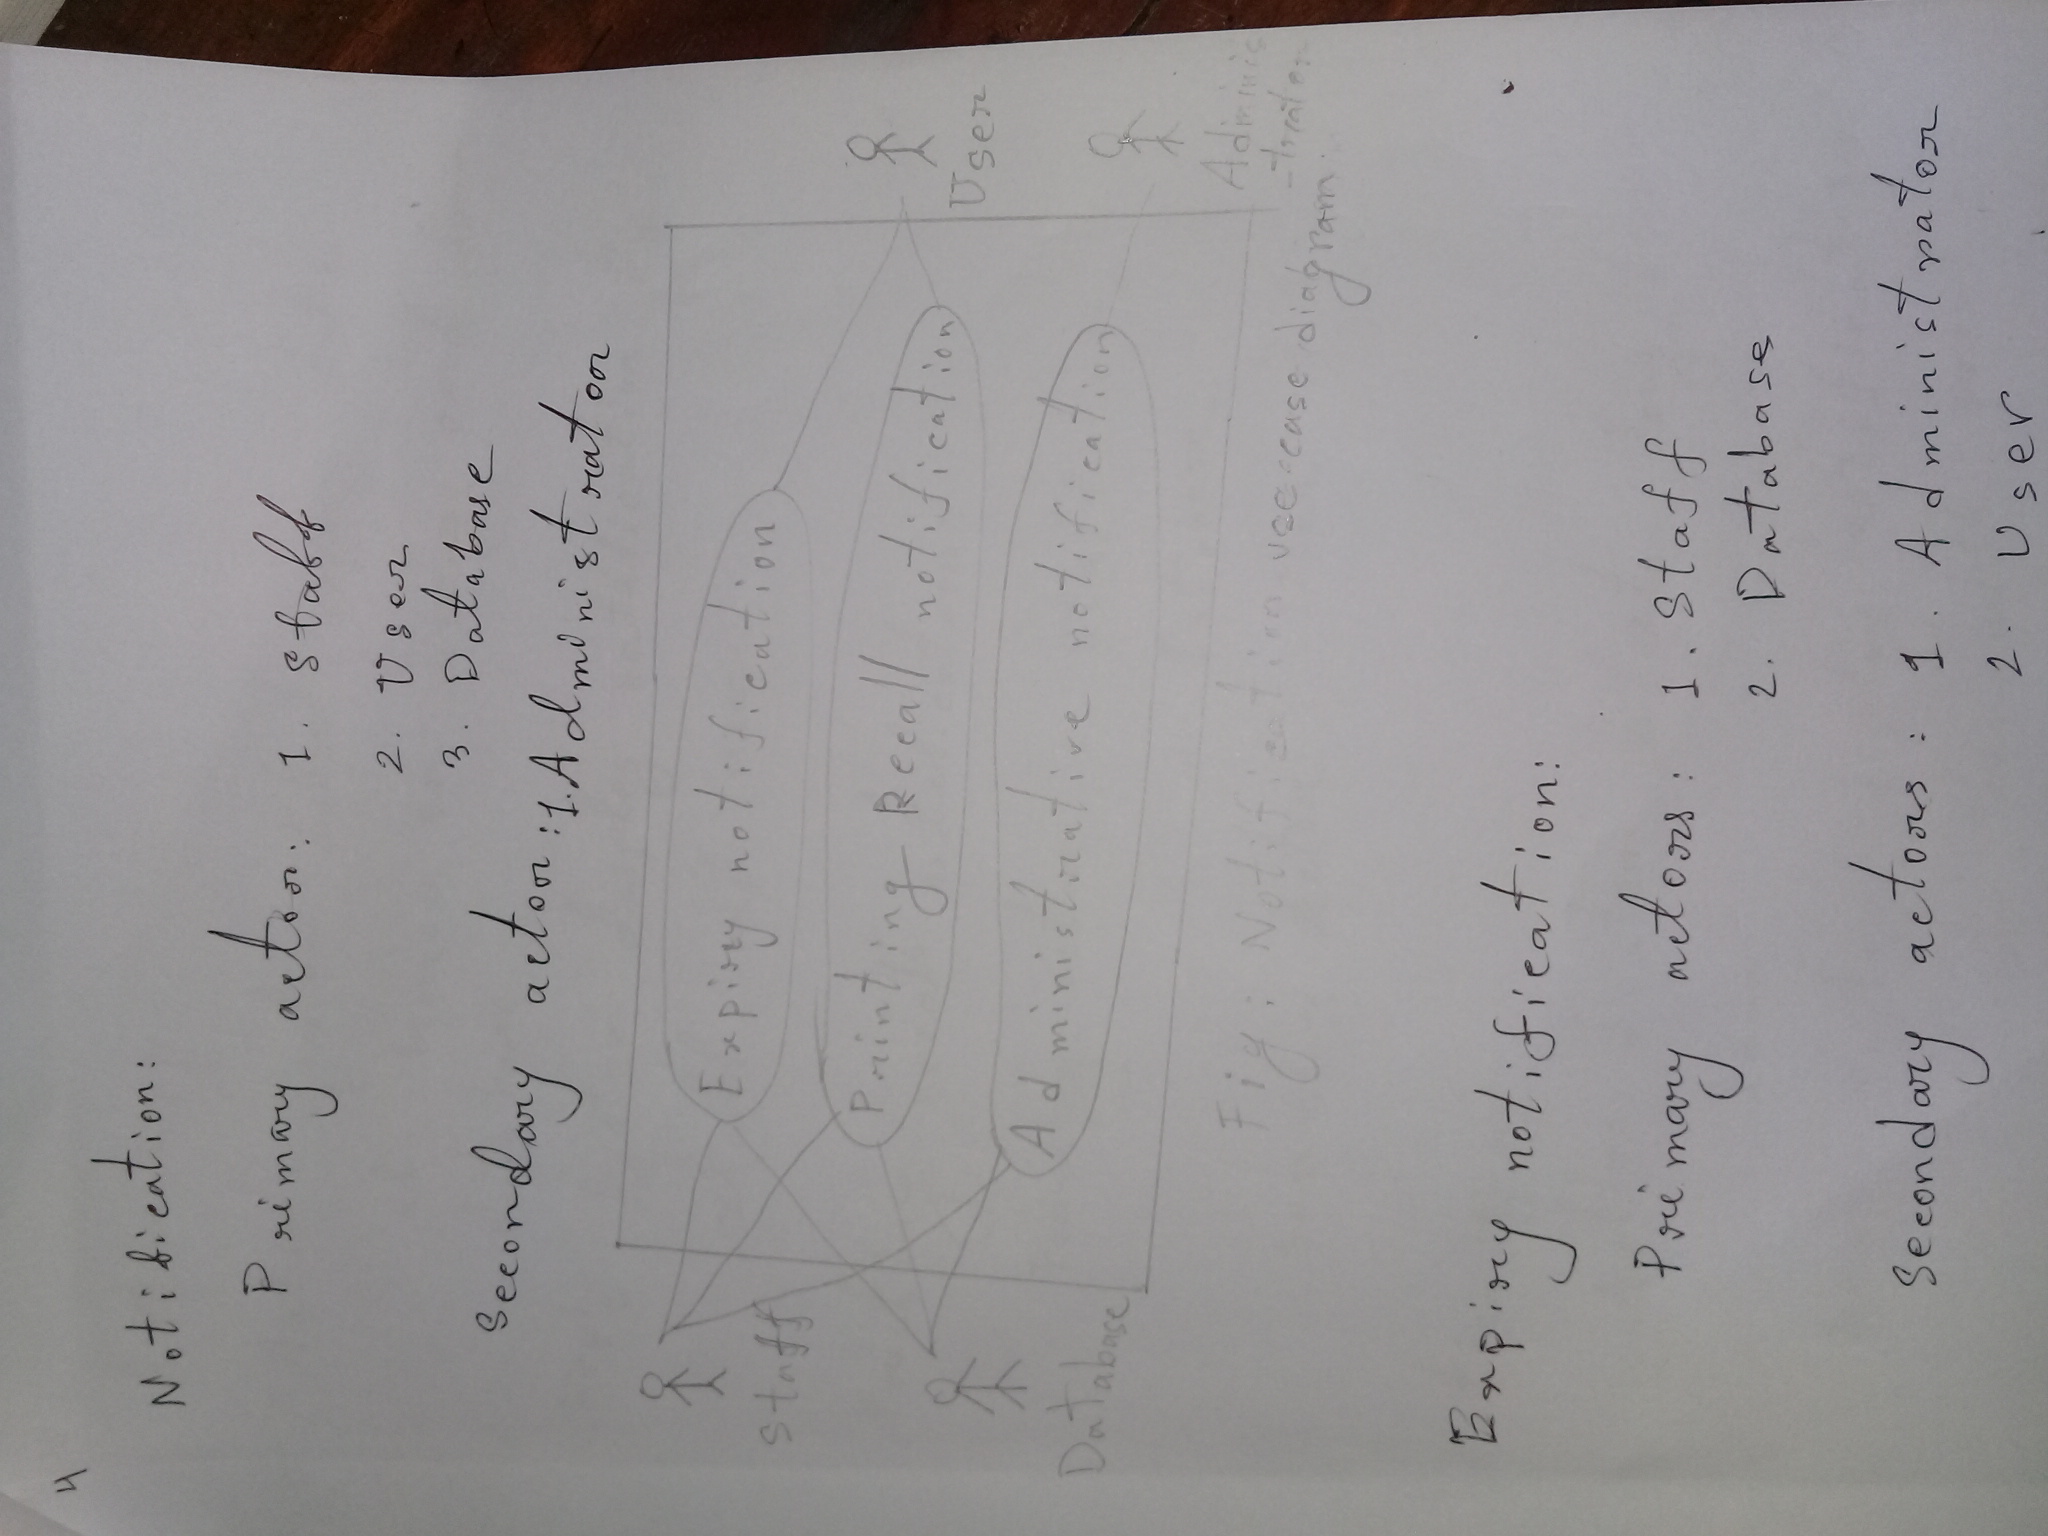 4
Notification:
Primary actor: 1. Staff
2. User
3. Database
Secondary actor: 1. Administrator
Staff
Expiry notification
Printing Recall notification
User
Administrative notification
Database
Adminis
-trator
Fig: Notification use-case diagram.
Expiry notification:
Primary actors: 1. Staff
2. Database
Secondary actors: 1. Administrator
2. User